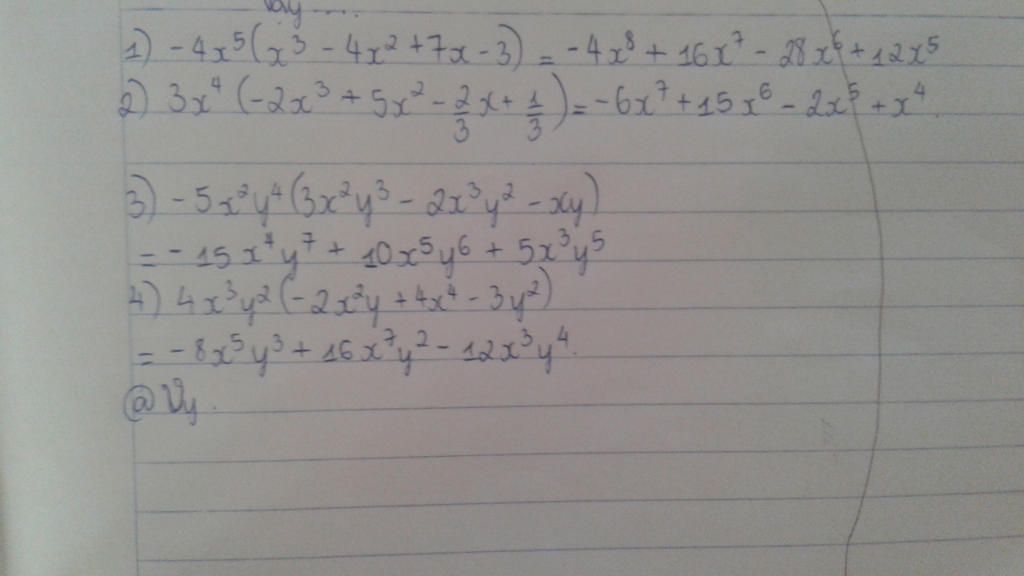 Vậy ....
1) -4x⁵(x³ - 4x² + 7x - 3) = -4x⁸ + 16x⁷ - 28x⁶ + 12x⁵
2) 3x⁴ (-2x³ + 5x² - 2/3 x + 1/3) = -6x⁷ + 15x⁶ - 2x⁵ + x⁴.
3) -5x²y⁴(3x²y³ - 2x³y² - xy)
= -15x⁴y⁷ + 10x⁵y⁶ + 5x³y⁵
4) 4x³y²(-2x²y + 4x⁴ - 3y²)
= -8x⁵y³ + 16x⁷y² - 12x³y⁴.
@Vy.